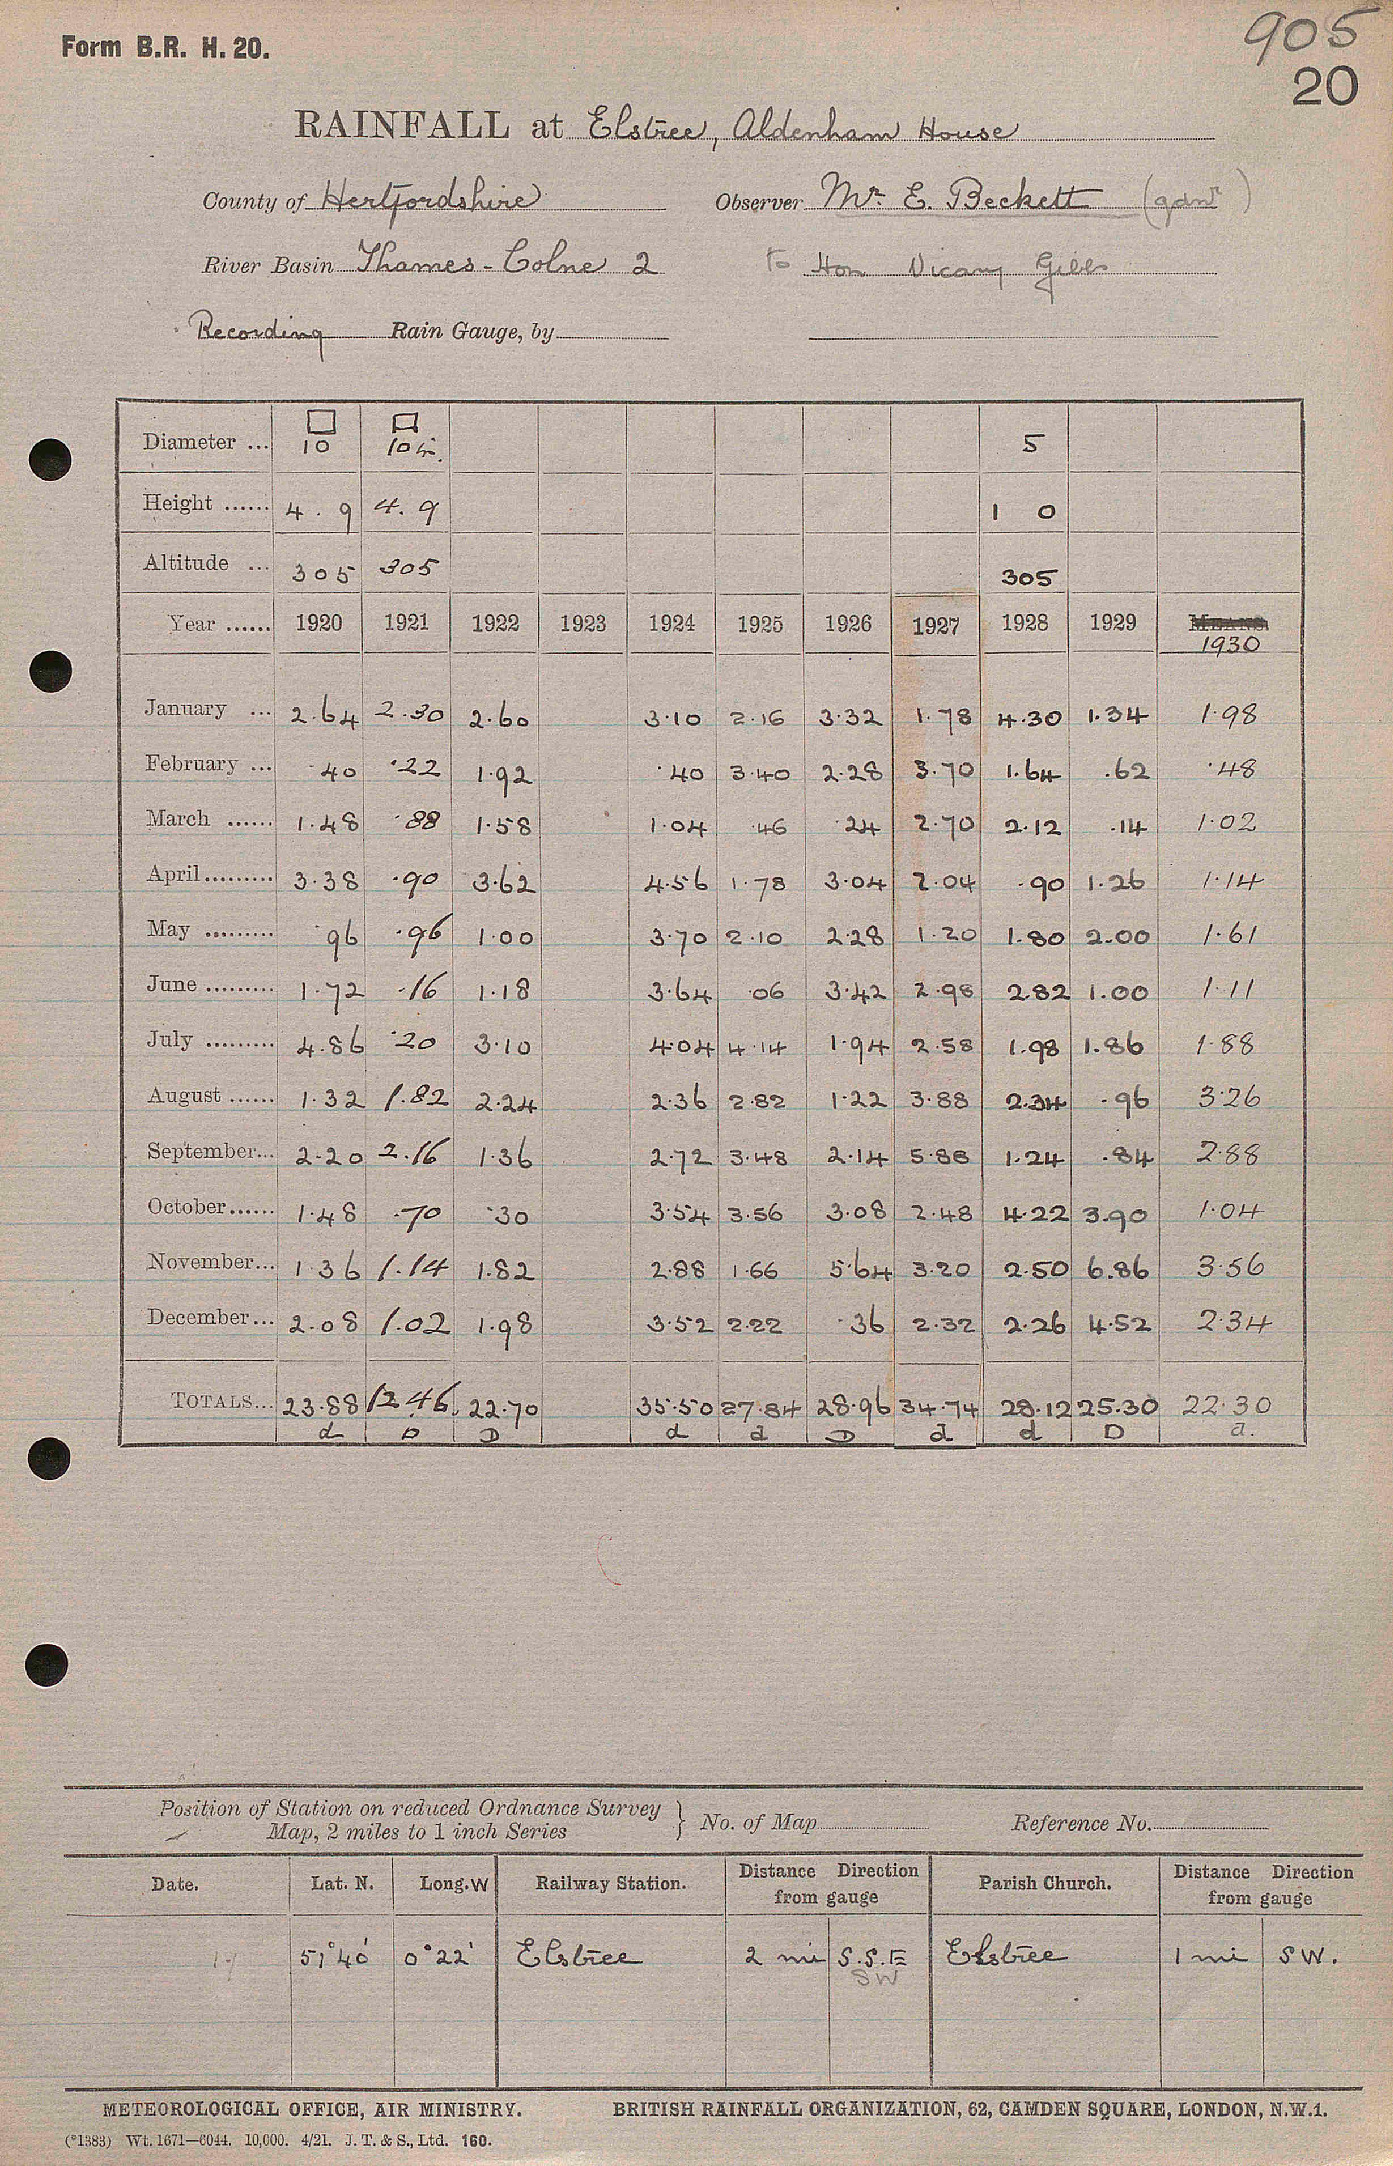 905
Form B.R. H. 20.
20
RAINFALL at Elstree, Aldenham House
County of Hertfordshire Observer Mr. E. Beckett (gdnr)
River Basin Thames - Colne 2 to Hon Vicary Gibbs
Recording Rain Gauge, by
Diameter ... 10 10 in. 5
Height ...... 4 . 9 4. 9 1 0
Altitude ... 305 305 305
Year ...... 1920 1921 1922 1923 1924 1925 1926 1927 1928 1929 MEANS.
1930
January ... 2.64 2.30 2.60 3.10 2.16 3.32 1.78 4.30 1.34 1.98
February ... .40 .22 1.92 .40 3.40 2.28 3.70 1.64 .62 .48
March ...... 1.48 .88 1.58 1.04 .46 .24 2.70 2.12 .14 1.02
April ......... 3.38 .90 3.62 4.56 1.78 3.04 2.04 .90 1.26 1.14
May ......... .96 .96 1.00 3.70 2.10 2.28 1.20 1.80 2.00 1.61
June ......... 1.72 .16 1.18 3.64 .06 3.42 2.98 2.82 1.00 1.11
July ......... 4.86 .20 3.10 4.04 4.14 1.94 2.58 1.98 1.86 1.88
August ...... 1.32 1.82 2.24 2.36 2.82 1.22 3.88 2.34 .96 3.26
September... 2.20 2.16 1.36 2.72 3.48 2.14 5.88 1.24 .84 2.88
October...... 1.48 .70 .30 3.54 3.56 3.08 2.48 4.22 3.90 1.04
November... 1.36 1.14 1.82 2.88 1.66 5.64 3.20 2.50 6.86 3.56
December... 2.08 1.02 1.98 3.52 2.22 .36 2.32 2.26 4.52 2.34
TOTALS... 23.88 12.46 22.70 35.50 27.84 28.96 34.74 28.12 25.30 22.30
d D D d d D d d D a.
Position of Station on reduced Ordnance Survey
Map, 2 miles to 1 inch Series } No. of Map Reference No.
Date. Lat. N. Long. W Railway Station. Distance Direction from gauge Parish Church. Distance Direction from gauge
51°40' 0°22' Elstree 2 mi S.S.E Elstree 1 mi SW.
SW
METEOROLOGICAL OFFICE, AIR MINISTRY. BRITISH RAINFALL ORGANIZATION, 62, CAMDEN SQUARE, LONDON, N.W.1.
(*1383) Wt. 1671—6044. 10,000. 4/21. J. T. & S., Ltd. 160.